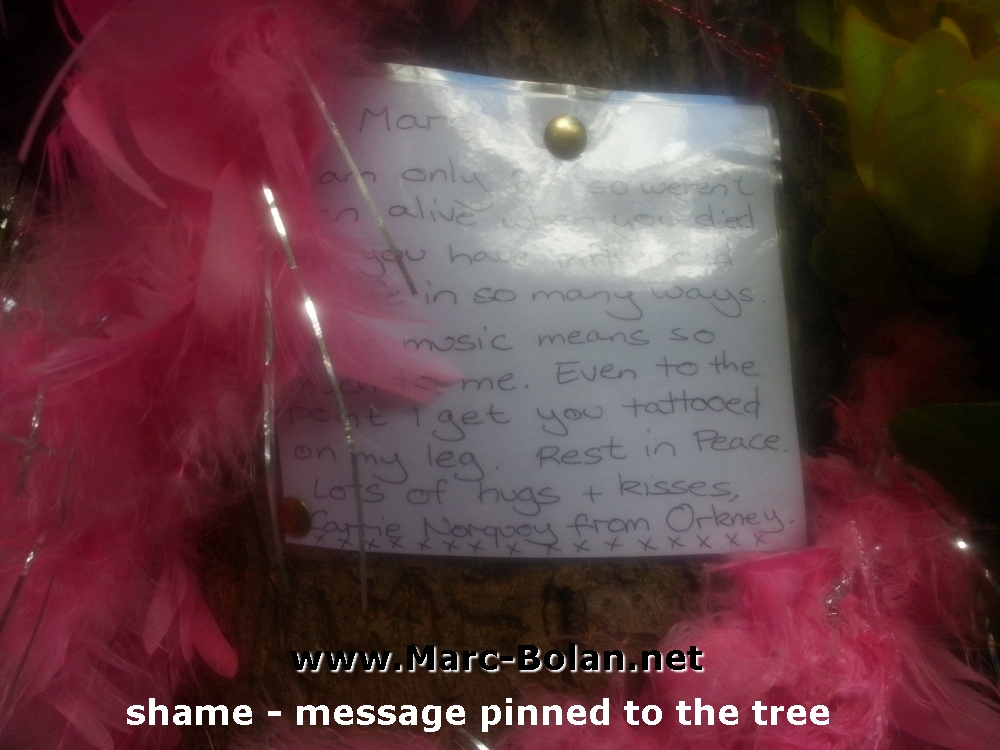 Mar
am only so weren't
alive when you died
you have influenced
in so many ways.
music means so
me. Even to the
point I get you tattooed
on my leg. Rest in Peace.
Lots of hugs + kisses,
Carrie Norquoy from Orkney.
x x x x x x x x x x x x x x x x x x
www.Marc-Bolan.net
shame - message pinned to the tree